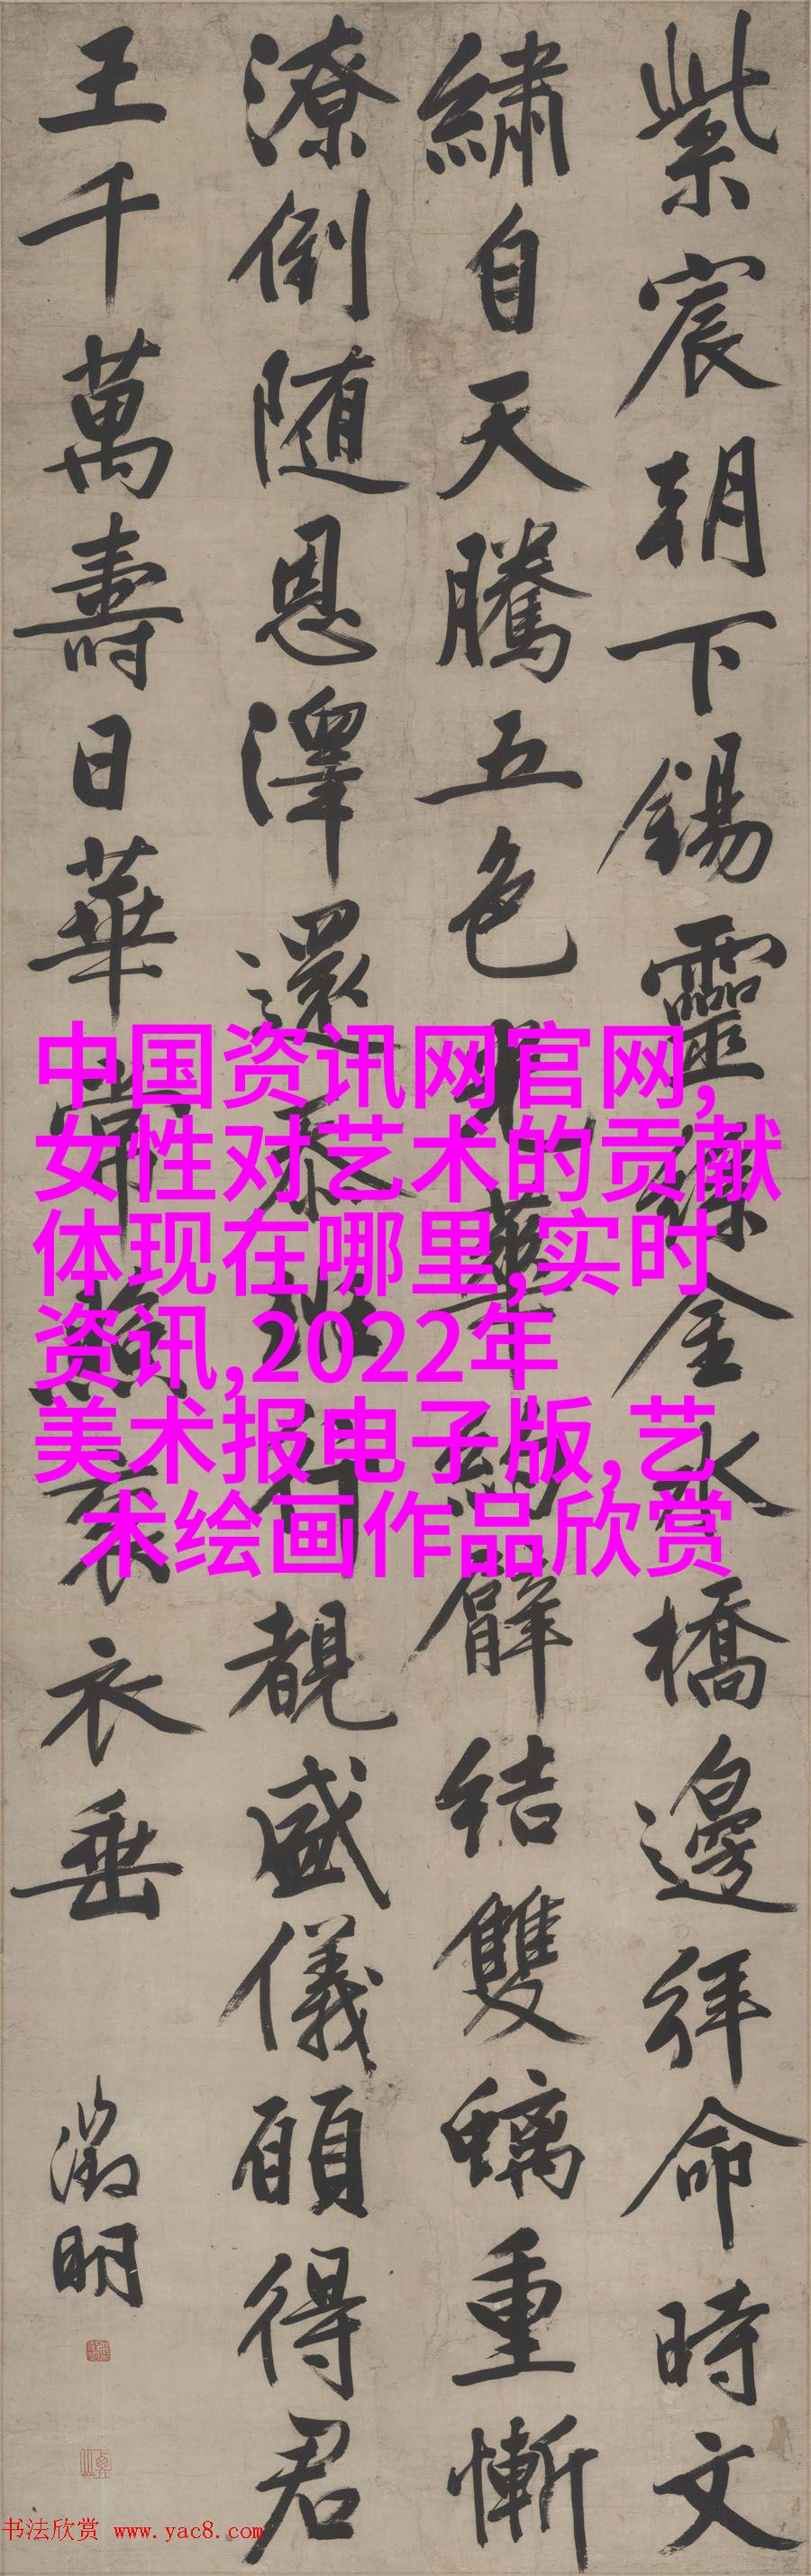 紫宸朝下錫靈金水橋邊拜命時文
繡自天騰五色光華約臂結雙螭重慚
潦倒随恩澤還忝班行覩盛儀願得君
王千萬壽日華常袞衣垂
徵明
中国资讯网官网,
女性对艺术的贡献
体现在哪里,实时
资讯,2022年
美术报电子版,艺
术绘画作品欣赏
书法欣赏 www.yac8.com